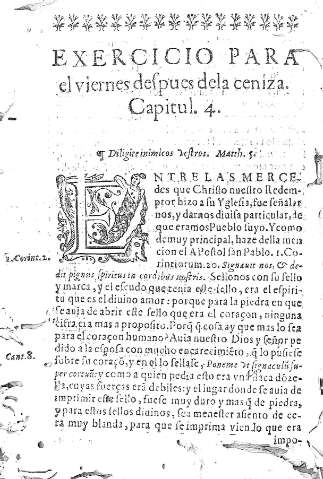 EXERCICIO PARA
el viernes despues dela ceniza.
Capitul. 4.
¶ Diligite inimicos vestros. Matth. 5.
ENTRE LAS MERCE-
des que Christo nuestro Redem-
ptor hizo a su Yglesia, fue señalar
nos, y darnos diuisa particular, de
que eramos Pueblo suyo. Y como
de muy principal, haze della men
cion el Apostol san Pablo. 1. Co
2. Corint. 2.
rintiorum. 20. Signauit nos, & de
dit pignus spiritus in cordibus nostris. Sellonos con su sello
y marca, y el escudo que tenia este sello, era el espiri
tu que es el diuino amor: porque para la piedra en que
se auia de abrir este sello que era el coraçon, ninguna
cifra, era mas a proposito. Porq̃ q̃ cosa ay que mas lo sea
para el coraçon humano? Auia nuestro Dios y señor pe
dido a la esposa con mucho encarecimiẽto, q̃ lo pusiese
Cant. 8.
sobre su coraçõ, y en el lo sellase, Pone me vt signaculũ su
per cor tuũ: y como a quien pedia esto era vna flaca dõze
ga, cuyas fuerças erã debiles: y el lugar donde se auia de
imprimir este sello, fuese muy duro y mas q̃ de piedra,
y para estos sellos diuinos, sea menester asiento de ce
ra muy blanda, para que se imprima vien lo que era
impo-